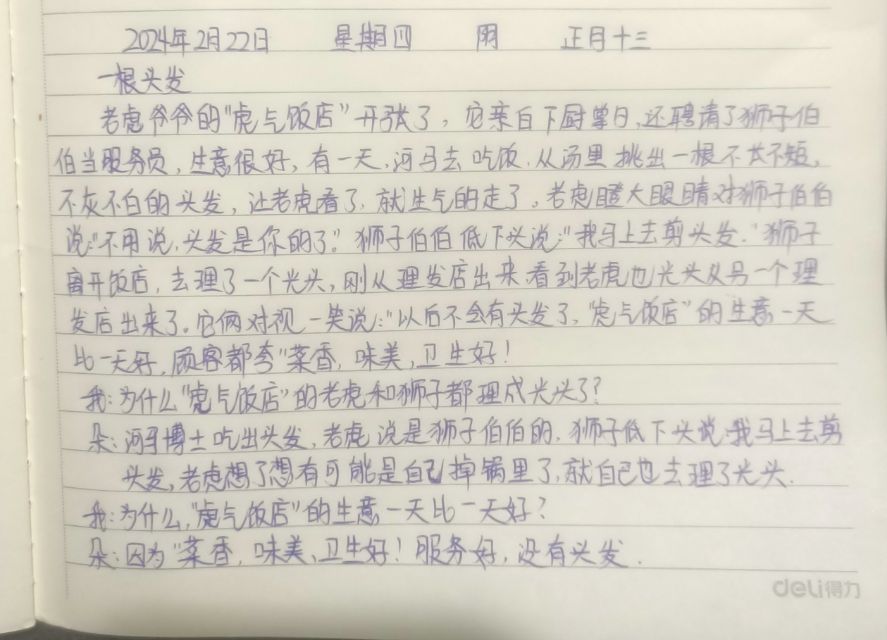 2024年2月22日 星期四 阴 正月十三
一根头发
老虎爷爷的"虎气饭店"开张了，它亲自下厨掌勺，还聘请了狮子伯
伯当服务员，生意很好，有一天，河马去吃饭，从汤里挑出一根不长不短，
不灰不白的头发，让老虎看了，就生气的走了。老虎瞪大眼睛对狮子伯伯
说："不用说，头发是你的了？"狮子伯伯低下头说："我马上去剪头发."狮子
离开饭店，去理了一个光头，刚从理发店出来，看到老虎也光头从另一个理
发店出来了。它俩对视一笑说："以后不会有头发了，"虎气饭店"的生意一天
比一天好，顾客都夸"菜香，味美，卫生好！
我：为什么"虎气饭店"的老虎和狮子都理成光头了？
朵：河马博士吃出头发，老虎说是狮子伯伯的，狮子低下头说：我马上去剪
头发，老虎想了想有可能是自己掉锅里了，就自己也去理了光头.
我：为什么，"虎气饭店"的生意一天比一天好？
朵：因为"菜香，味美、卫生好！服务好，没有头发.
deli得力